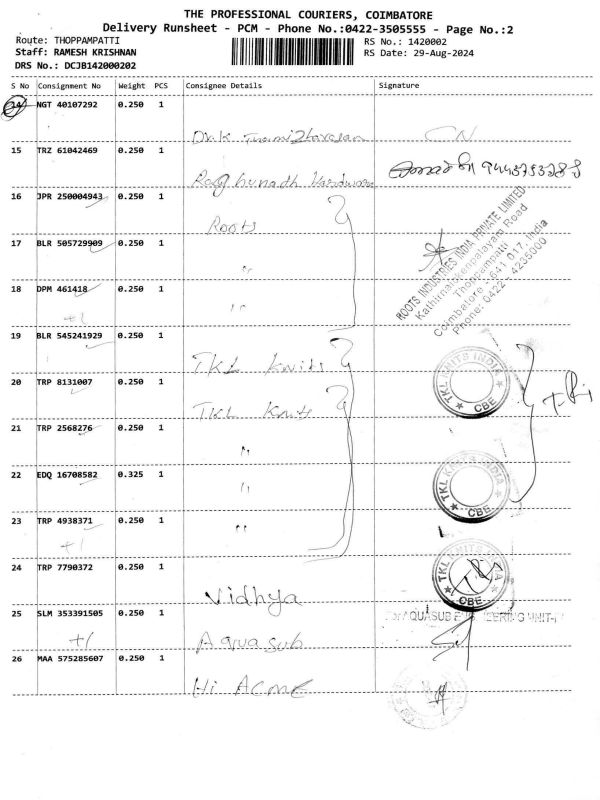 THE PROFESSIONAL COURIERS, COIMBATORE
Delivery Runsheet - PCM - Phone No.:0422-3505555 - Page No.:2
Route: THOPPAMPATTI
RS No.: 1420002
Staff: RAMESH KRISHNAN
RS Date: 29-Aug-2024
DRS No.: DCJB142000202
S No Consignment No Weight PCS Consignee Details Signature
14 NGT 40107292 0.250 1
15 TRZ 61042469 0.250 1
Raghunadh Hardwares 9443753288
16 JPR 250004943 0.250 1
Roots
ROOTS INDUSTRIES INDIA PRIVATE LIMITED
Kathirnaickenpalayam Road
Thoppampatti
Coimbatore - 641 017. India
Phone: 0422 - 4235000
17 BLR 505729909 0.250 1
"
18 DPM 461418 0.250 1
+1
"
19 BLR 545241929 0.250 1
TKL Knits
TKL KNITS INDIA
CBE
20 TRP 8131007 0.250 1
TKL Knits
21 TRP 2568276 0.250 1
"
22 EDQ 16708582 0.325 1
"
TKL KNITS INDIA
CBE
23 TRP 4938371 0.250 1
+1
"
24 TRP 7790372 0.250 1
Vidhya
TKL KNITS INDIA
CBE
25 SLM 353391505 0.250 1
+1
Aquasub
For AQUASUB ENGINEERING UNIT-
26 MAA 575285607 0.250 1
Hi ACME